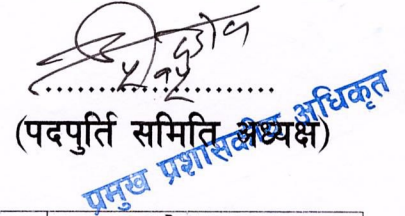 ....................
(पदपुर्ति समिति अध्यक्ष)
प्रमुख प्रशासकीय अधिकृत